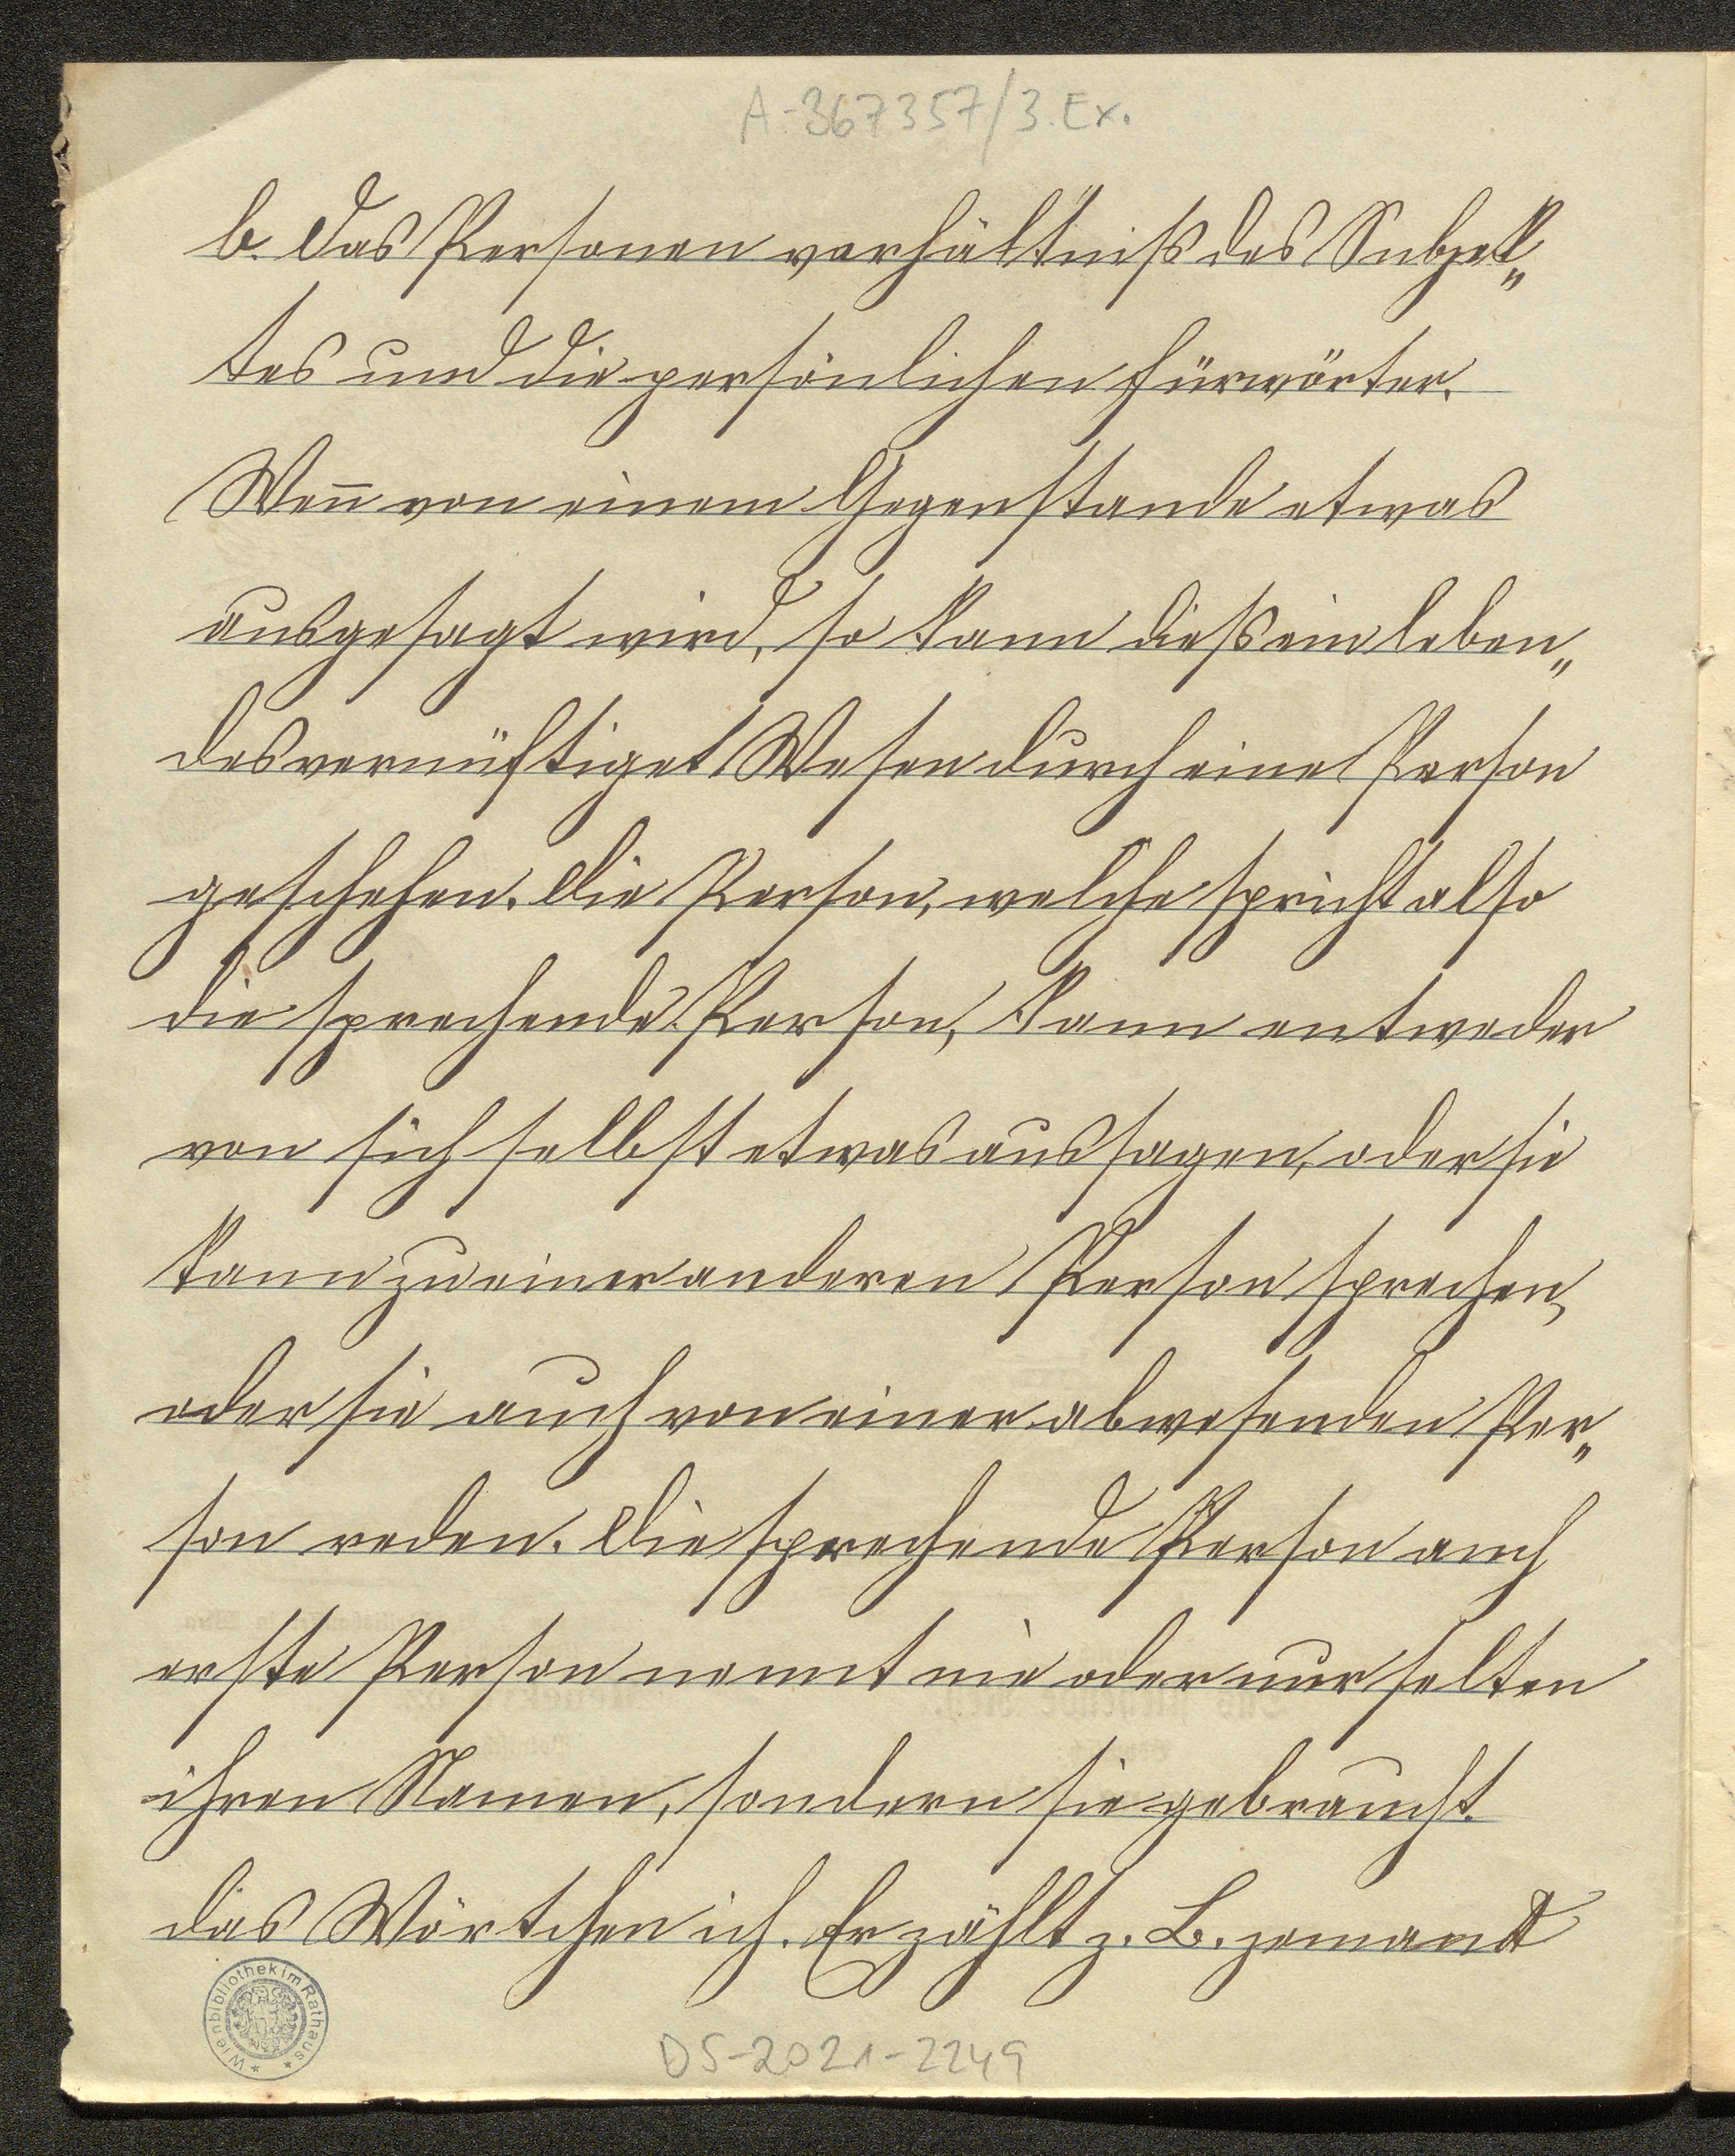 A-367357/3. Ex.
b. Das Personen verhältniß des Subjek„
tes und die persönlichen Fürwörter.
Wen̄ von einem Gegenstande etwas
ausgesagt wird, so kann dieß ein leben„
des vernünftiges Wesen durch eine Person
geschehen. Die Person, welche spricht also
die sprechende Person, kann entweder
von sich selbst etwas aussagen, oder sie
kann zu einer anderen Person sprechen,
oder sie auch von einer abwesenden Per„
son reden. Die sprechende Person auch
erste Person nennt nie oder nur selten
ihren Namen, sondern sie gebraucht
das Wörtchen ich. Erzählt z. B. jemand
Wienbibliothek im Rathaus
DS-2021-2249